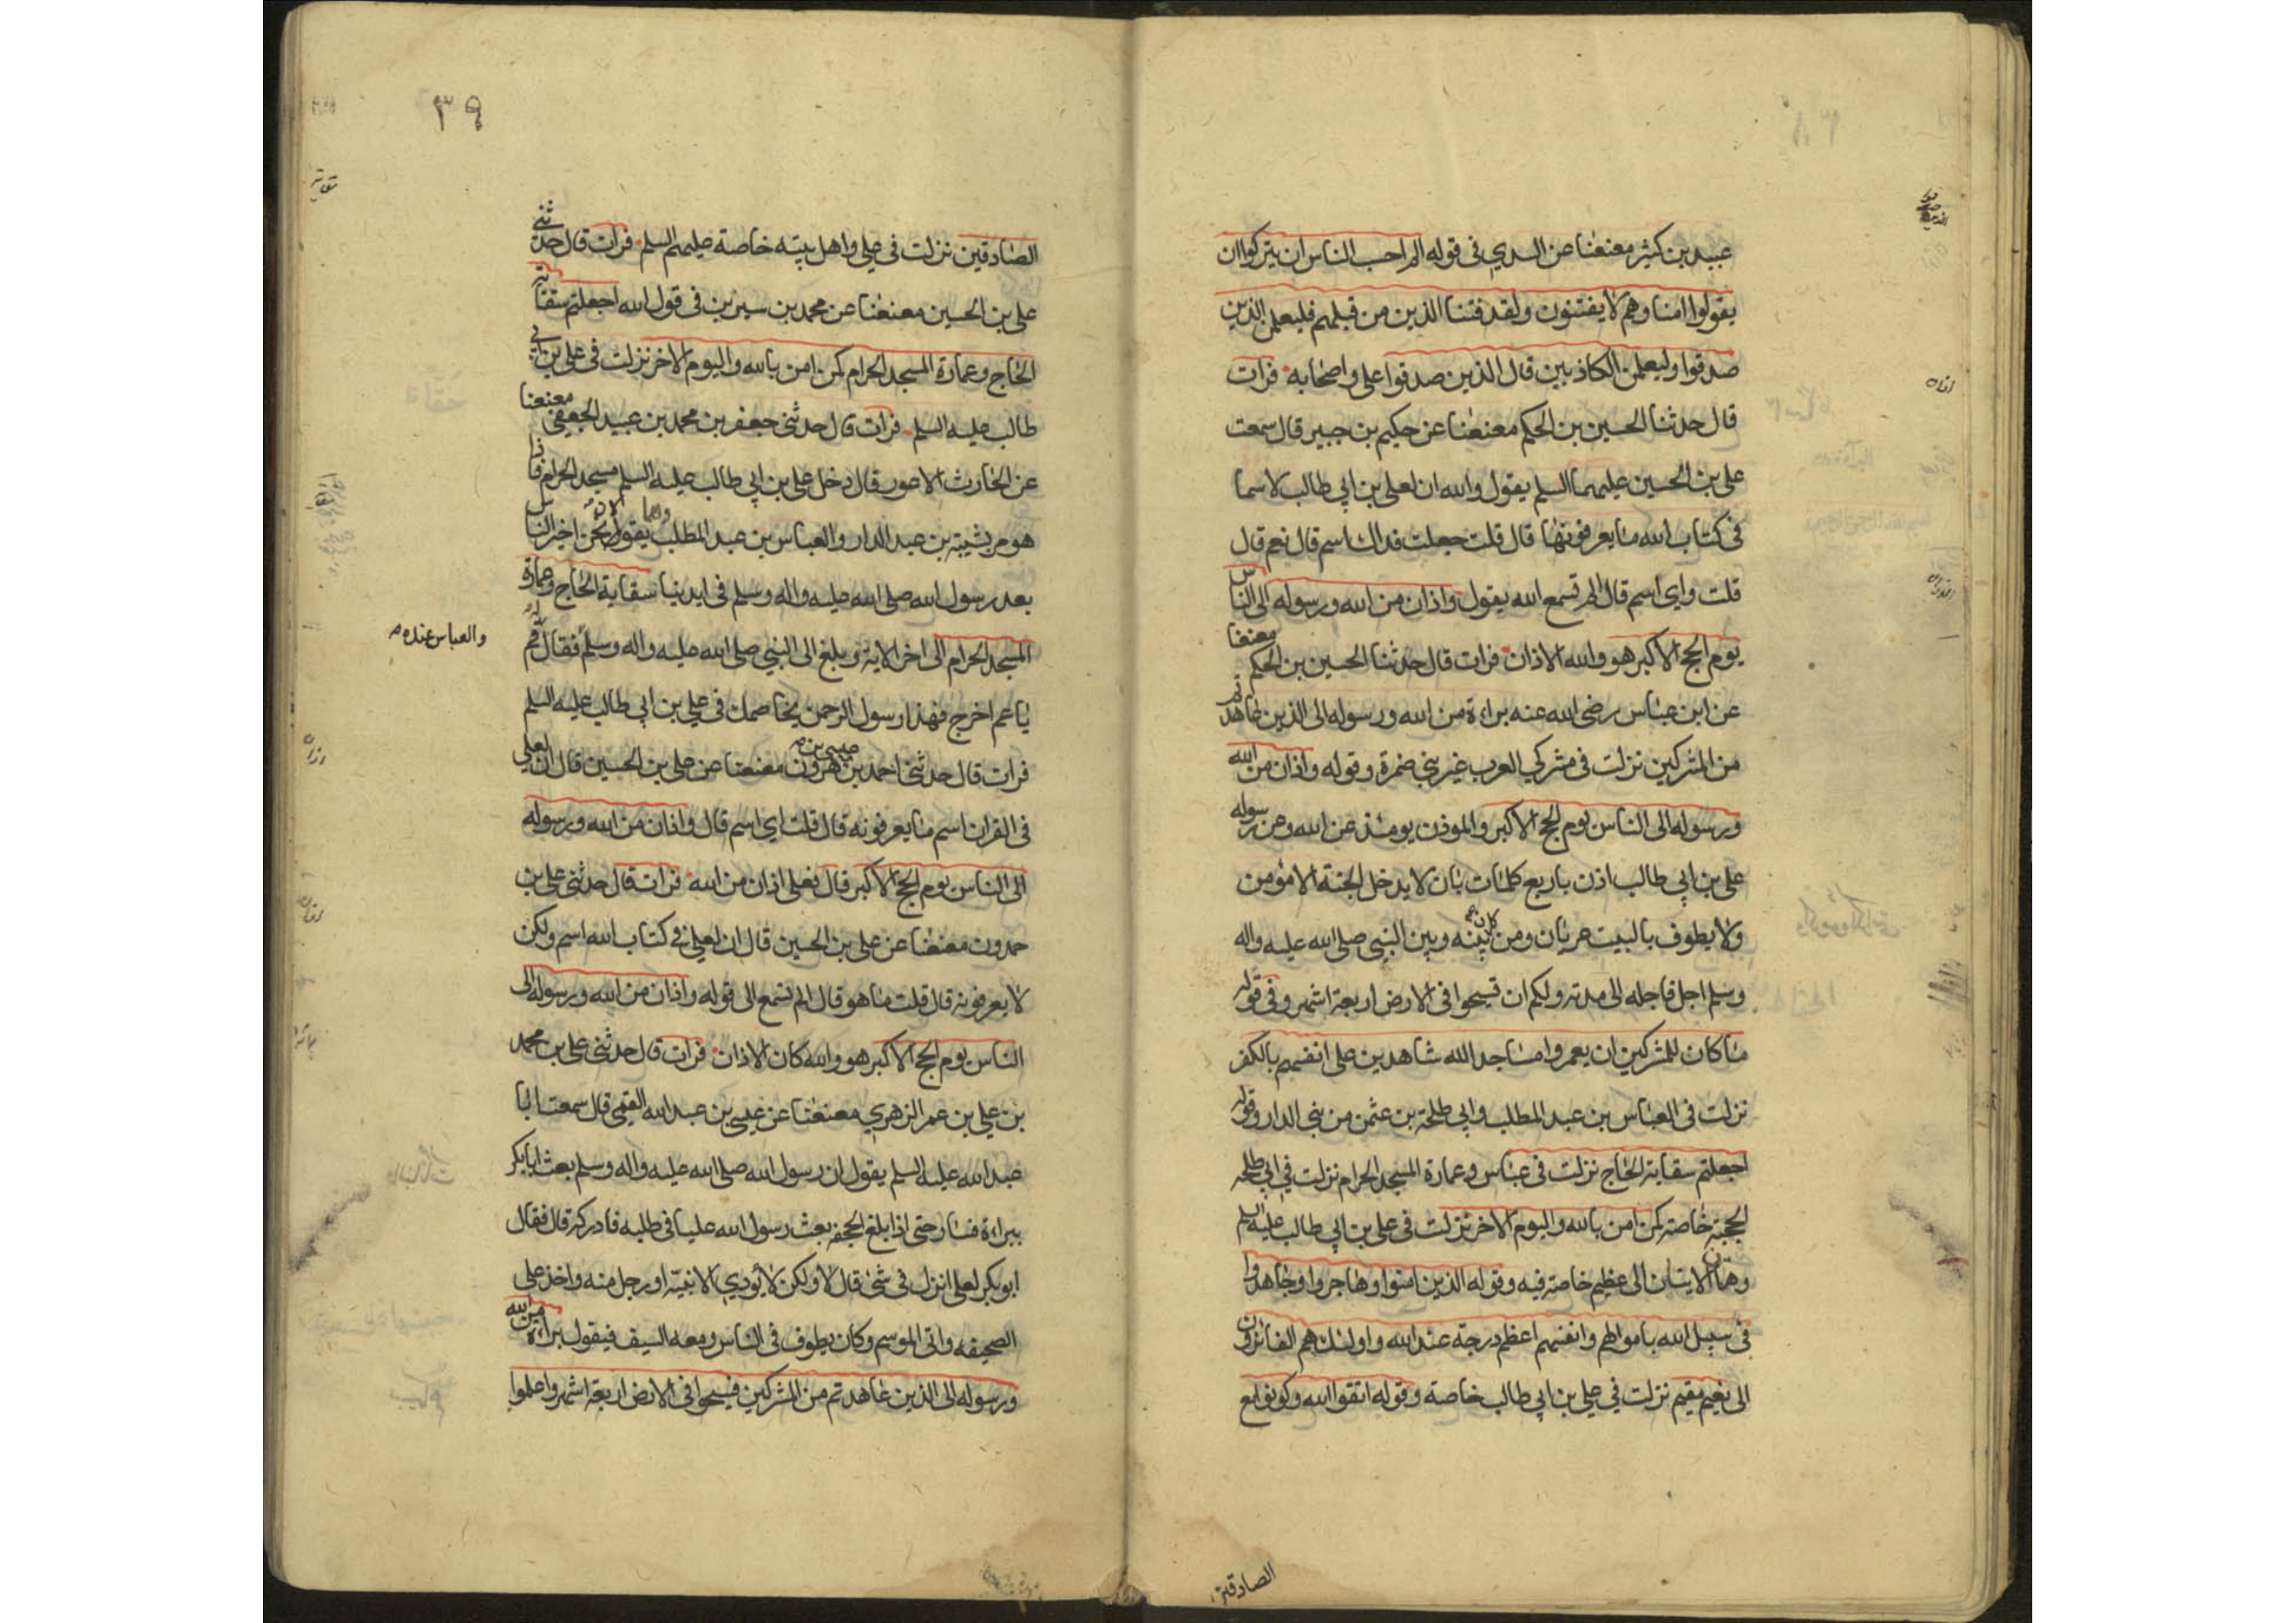 عبيد بن كثير معنعنا عن السدي في قوله الم احسب الناس ان يتركوا ان
يقولوا امنا وهم لا يفتنون ولقد فتنا الذين من قبلهم فليعلمن الذين
صدقوا وليعلمن الكاذبين قال الذين صدقوا علي واصحابه فرات
قال حدثنا الحسين بن الحكم معنعنا عن حكيم بن جبير قال سمعت
علي بن الحسين عليهما السلم يقول والله ان لعلي بن ابي طالب لاسما
في كتاب الله ما يعرفونها قال قلت جعلت فداك اسم قال نعم قال
قلت واي اسم قال الم تسمع الله يقول واذان من الله ورسوله الى الناس
يوم الحج الاكبر هو والله الاذان فرات قال حدثنا الحسين بن الحكم معنعنا
عن ابن عباس رضي الله عنه براءة من الله ورسوله الى الذين عاهدتم
من المشركين نزلت في مشركي العرب غير بني ضمرة وقوله واذان من الله
ورسوله الى الناس يوم الحج الاكبر والموذن يومئذ عن الله وعن رسوله
علي بن ابي طالب اذن باربع كلمات بان لا يدخل الجنة الا مؤمن
ولا يطوف بالبيت عريان ومن كان بينه وبين النبي صلى الله عليه واله
وسلم اجل فاجله الى مدته ولكم ان تسيحوا في الارض اربعة اشهر وفي قوله
ما كان للمشركين ان يعمروا مساجد الله شاهدين على انفسهم بالكفر
نزلت في العباس بن عبد المطلب وابي طلحة بن عثمن من بني الدار وقوله
اجعلتم سقاية الحاج نزلت في عباس وعمارة المسجد الحرام نزلت في ابي طلحه
الحجبة خاصة كمن امن بالله واليوم الاخر نزلت في علي بن ابي طالب عليه السلم
وهاتان الايتان الى عظيم خاصة فيه وقوله الذين امنوا وهاجروا وجاهدوا
في سبيل الله باموالهم وانفسهم اعظم درجة عند الله واولئك هم الفائزون
الى نعيم مقيم نزلت في علي بن ابي طالب خاصة وقوله اتقوا الله وكونوا مع
الصادقين
٣٩
الصادقين نزلت في علي واهل بيته خاصة عليهم السلم فرات قال حدثني
علي بن الحسين معنعنا عن محمد بن سيرين في قول الله اجعلتم سقاية
الحاج وعمارة المسجد الحرام كمن امن بالله واليوم الاخر نزلت في علي بن ابي
طالب عليه السلم فرات قال حدثني جعفر بن محمد بن عبيد الجعفي معنعنا
عن الحارث الاعور قال دخل علي بن ابي طالب عليه السلم مسجد الحرام فاذا
هو مر بشيبة بن عبد الدار والعباس بن عبد المطلب وهما يقولان نحن اخير الناس
بعد رسول الله صلى الله عليه واله وسلم في ايدينا سقاية الحاج وعمارة
المسجد الحرام الى اخر الاية وبلغ الى النبي صلى الله عليه واله وسلم فقال له قم
والعباس عنده
يا عم اخرج فهذا رسول الرحمن يخاصمك في علي بن ابي طالب عليه السلم
فرات قال حدثني احمد بن عيسى بن هرون معنعنا عن علي بن الحسين قال ان لعلي
في القران اسم ما يعرفونه قال قلت اي اسم قال واذان من الله ورسوله
الى الناس يوم الحج الاكبر قال فعلي اذان من الله فرات قال حدثني علي بن
حمدون معنعنا عن علي بن الحسين قال ان لعلي في كتاب الله اسم ولكن
لا يعرفونه قال قلت ما هو قال الم تسمع الى قوله واذان من الله ورسوله الى
الناس يوم الحج الاكبر هو والله كان الاذان فرات قال حدثني علي بن محمد
بن علي بن عمر الزهري معنعنا عن عيسى بن عبد الله القمي قال سمعت ابا
عبد الله عليه السلم يقول ان رسول الله صلى الله عليه واله وسلم بعث ابا بكر
ببراءة فسار حتى اذا بلغ الجحفه بعث رسول الله عليا في طلبه فادركه قال فقال
ابو بكر لعلي انزل في شئ قال لا ولكن لا يؤدي الا نبيه او رجل منه واخذ علي
الصحيفه واتى الموسم وكان يطوف في الناس ومعه السيف فيقول براءة من الله
ورسوله الى الذين عاهدتم من المشركين فسيحوا في الارض اربعة اشهر واعلموا